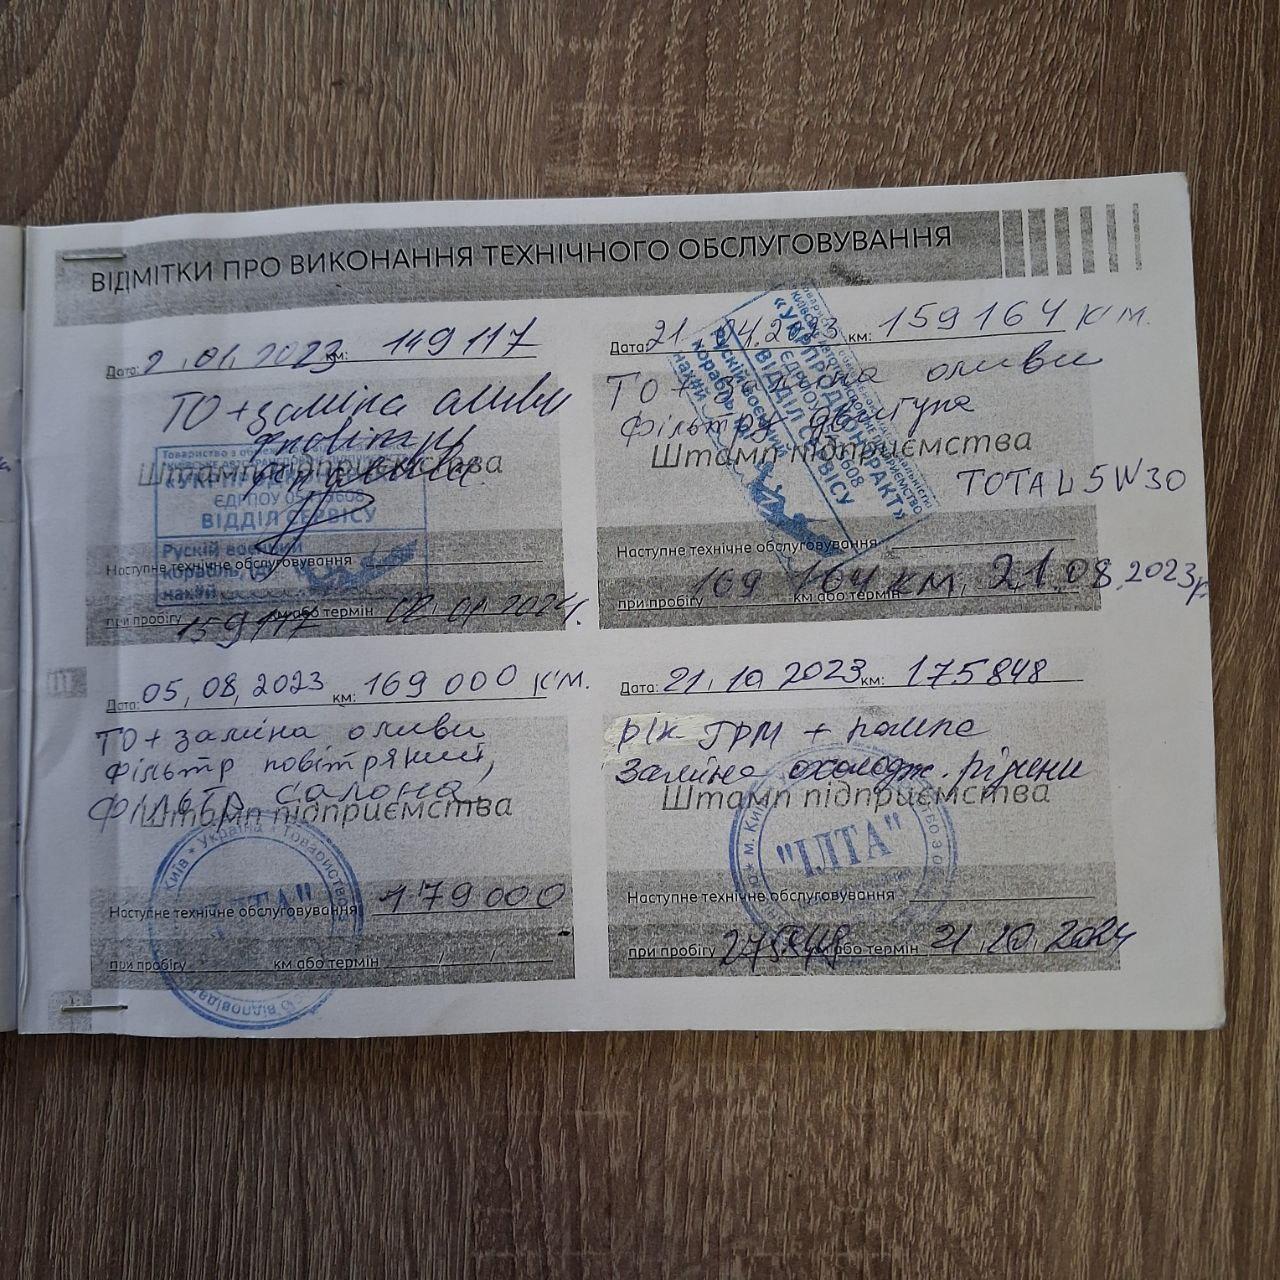 ВІДМІТКИ ПРО ВИКОНАННЯ ТЕХНІЧНОГО ОБСЛУГОВУВАННЯ
Дата: 2.01.2023 км: 149117
ТО + заміна оливи
Штамп підприємства
«УКРПРОДКОНТРАКТ»
ЄДРПОУ
ВІДДІЛ СЕРВІСУ
Рускій воєнний
корабль,
нахуй
Наступне технічне обслуговування
при пробігу 159117 км або термін 02.01.2024
Дата: 21.04.2023 км: 159164 км.
ТО + заміна оливи
фільтру двигуна
Штамп підприємства
TOTAL 5W30
«УКРПРОДКОНТРАКТ»
ЄДРПОУ
ВІДДІЛ СЕРВІСУ
Рускій воєнний
корабль,
нахуй
Наступне технічне обслуговування
при пробігу 169 164 км або термін км, 21.08.2023р
Дата: 05.08.2023 км: 169 000 км.
ТО + заміна оливи
фільтр повітряний,
фільтр салона,
Штамп підприємства
Київ * Україна * Товариство
Наступне технічне обслуговування 179000
при пробігу км або термін
Дата: 21.10.2023 км: 175848
р/к ГРМ + помпа
Заміна охолодж. рідини
Штамп підприємства
"ІЛТА"
Наступне технічне обслуговування
при пробігу 275848 км або термін 21.10.2024